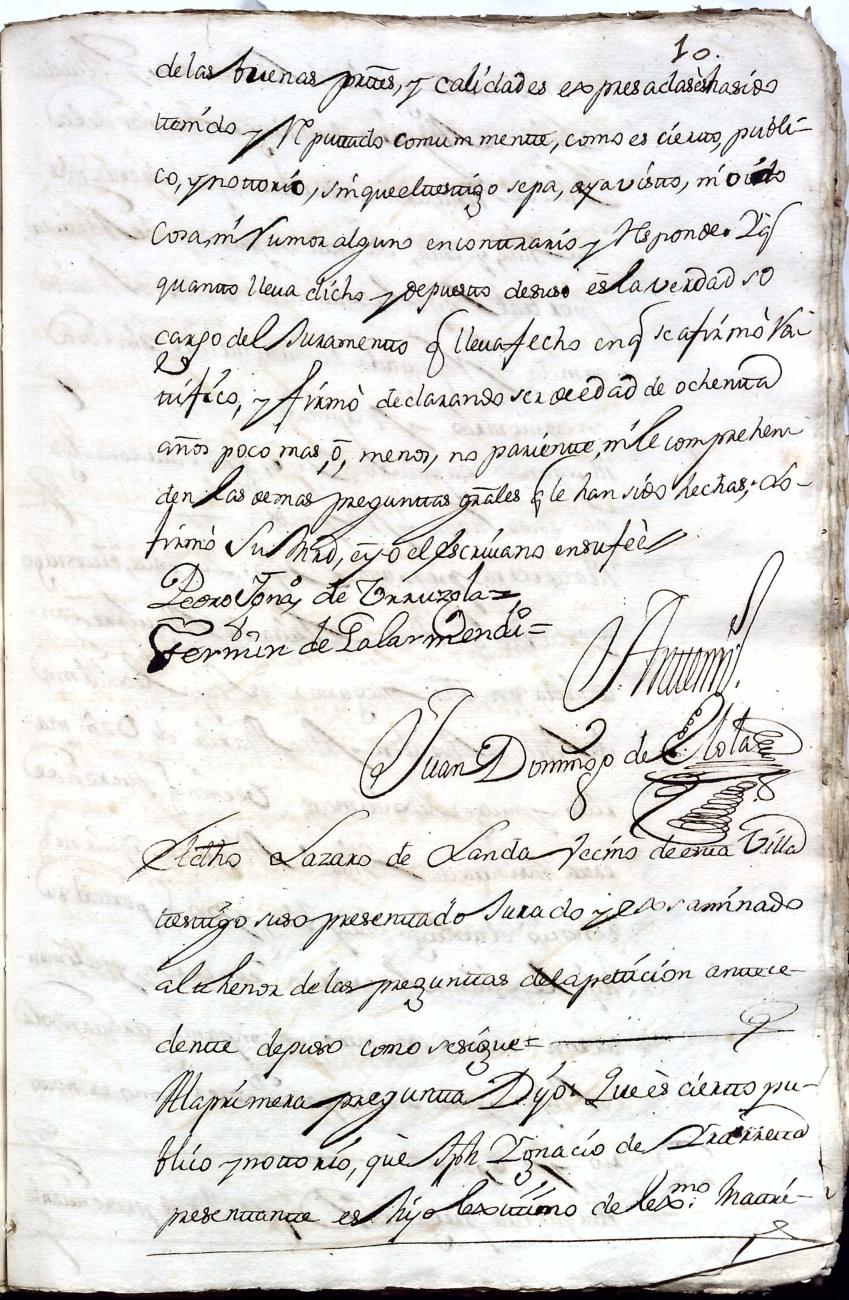 10.
de las buenas prttes, y calidades expresadas è ha sido
ttenido y Rputtado comummentte, como es cierto, publi-
co, y nottorio, sin que el testtigo sepa, aya vistto, ni oido
cosa, ni Rumor alguno en conttrario y Rsponde. Y q
quantto lleva dicho y depuestto de suso ès la verdad so
cargo del Juramentto q lleva fecho en q se afirmò Ra-
ttifico, y firmò declarando ser de edad de ochentta
años poco mas, ò, menos, no parientte, ni le comprehen
den las demas pregunttas grãles q le han sido hechas, Lo
firmò Su Mrd, è yo el escrivano en su feè
Pedro Ignaº de Urruzola=
Fermin de Galarmendi=
Antemi.
Juan Domingo de
El dho Lazaro de Landa Vecino de estta Villa
testtigo suso presenttado Jurado y exsaminado
al thenor de las preguntas de la petticion antece-
dentte depuso como se sigue=
A la primera preguntta Dijo: Que ès ciertto pu-
blico y nottorio, què Jph Ygnacio de
presenttantte es hijo lexittimo de lexmo. Mattri-